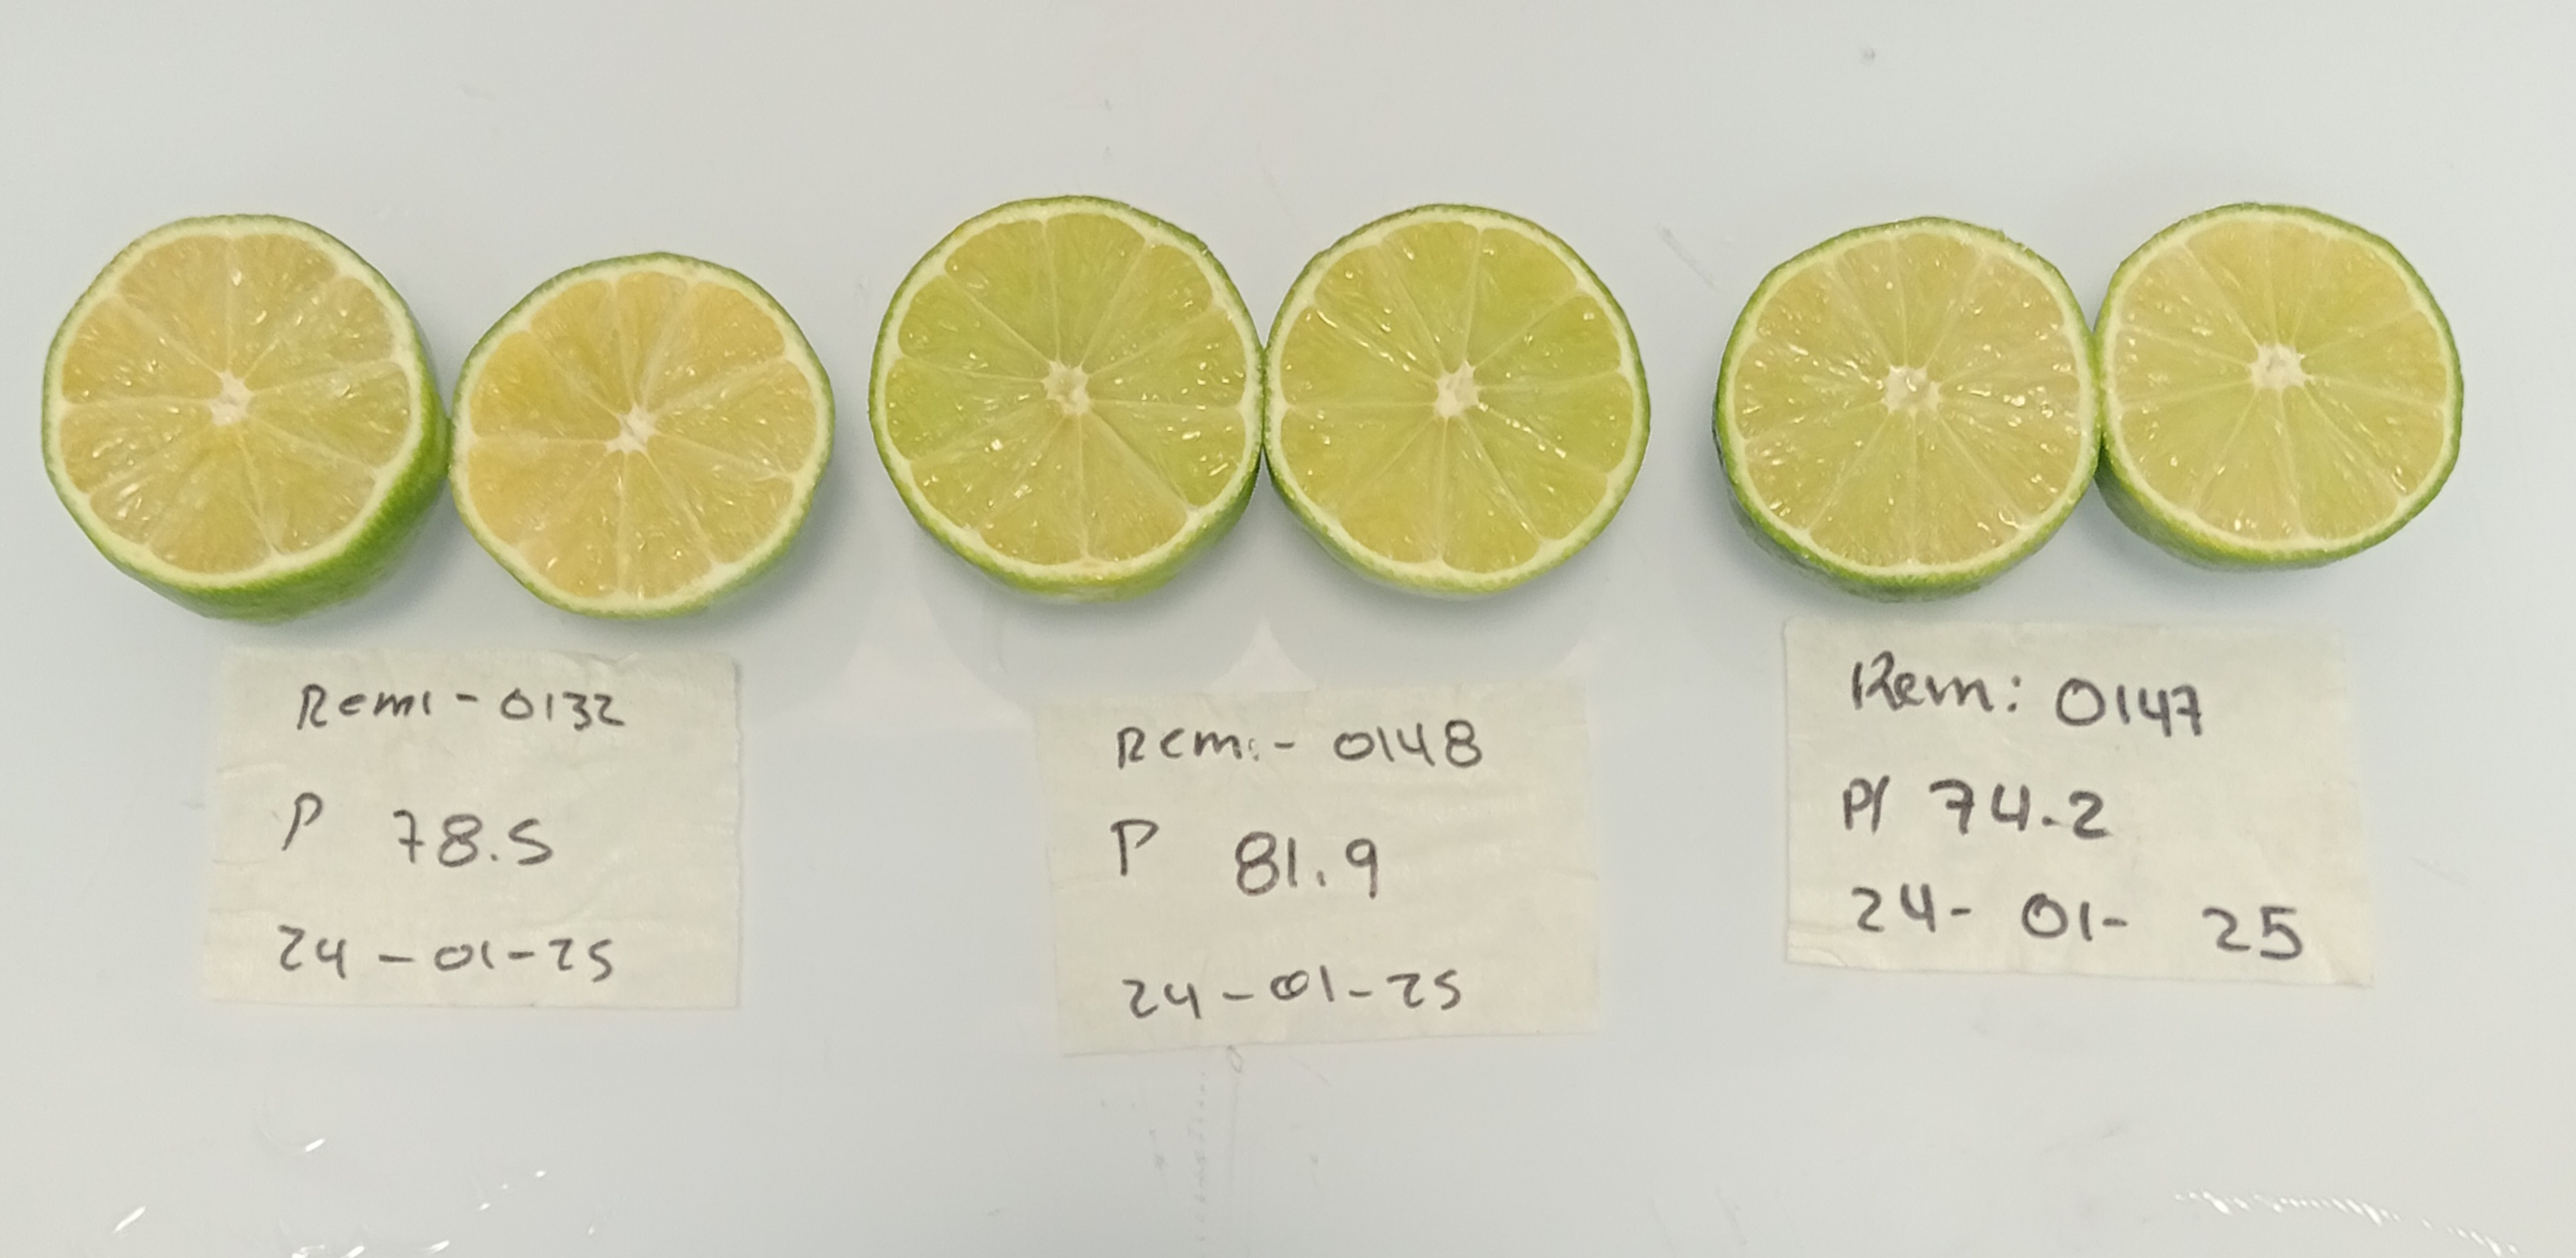 Remi - 0132
P 78.5
24 - 01 - 25
Remi - 0148
P 81.9
24 - 01 - 25
Rem: 0147
P/ 74.2
24 - 01 - 25